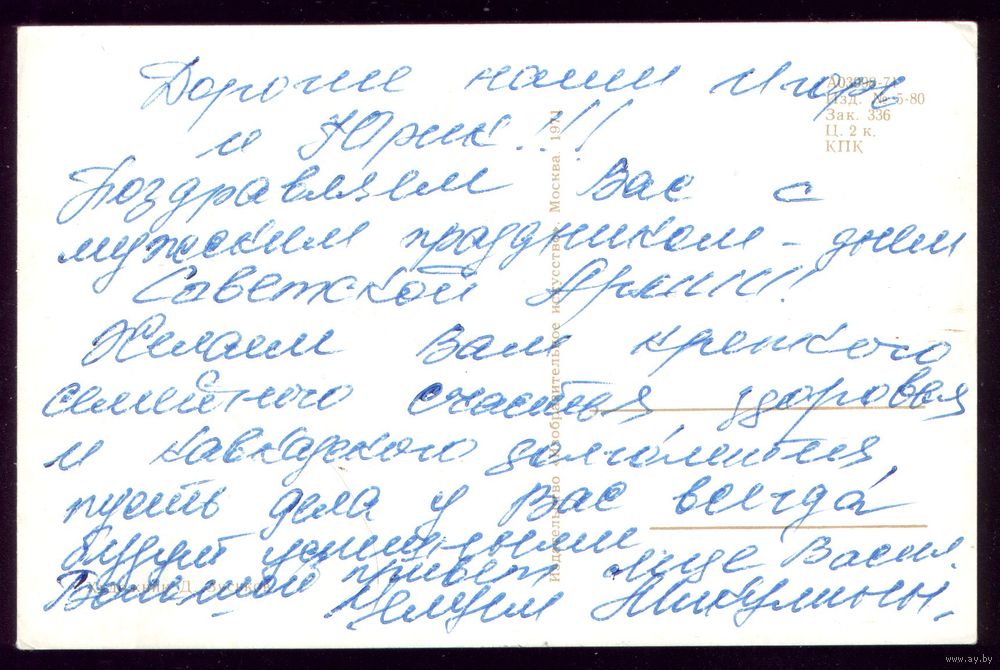 Дорогие наши Игорь
и Юрик!!!
Поздравляем Вас с
мужским праздником - днем
Советской Армии!
Желаем Вам крепкого
семейного счастья здоровья
и кавказского долголетия
пусть дела у Вас всегда
будут успешными
Большой привет Васил.
Целуем Никулины.
А03098-71
Изд. № 5-80
Зак. 336
Ц. 2 к.
КПК
Издательство «Изобразительное искусство». Москва. 1971
Художник Д.
www.ay.by